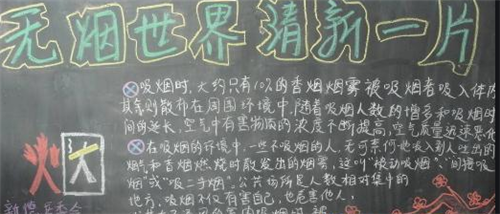 无烟世界 清新一片
⊗吸烟时，大约只有10%的香烟烟雾被吸烟者吸入体内
其余则散布在周围环境中，随着吸烟人数的增多和吸烟时
间的延长，空气中有害物质的浓度不断提高，空气质量越来越
⊗在吸烟的环境中，一些不吸烟的人，无可奈何地吸入别人吐出的
烟气和香烟燃烧时散发出的烟雾，这叫“被动吸烟”、“间接吸
烟”或“吸二手烟”。公共场所是人数相对集中的
地方，吸烟不仅有害自己，也危害他人，
火